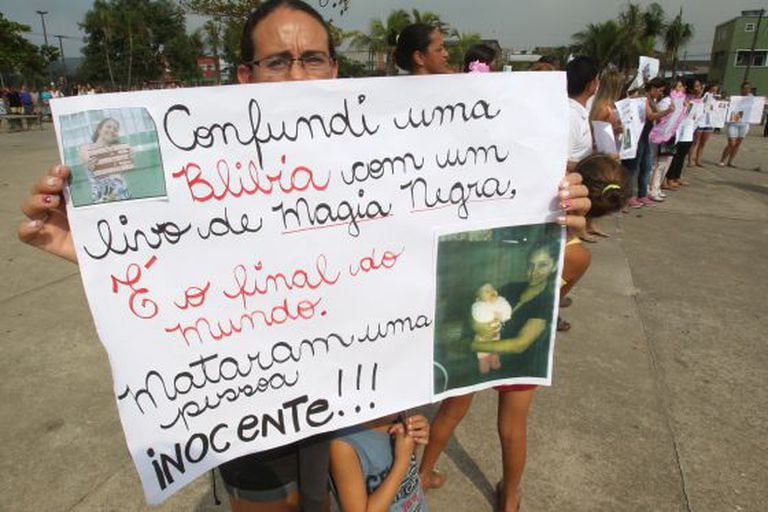 Confundi uma
Bliblia com um
livro de Magia Negra,
É o final do
mundo.
Mataram uma
pessoa
iNOCENTE!!!